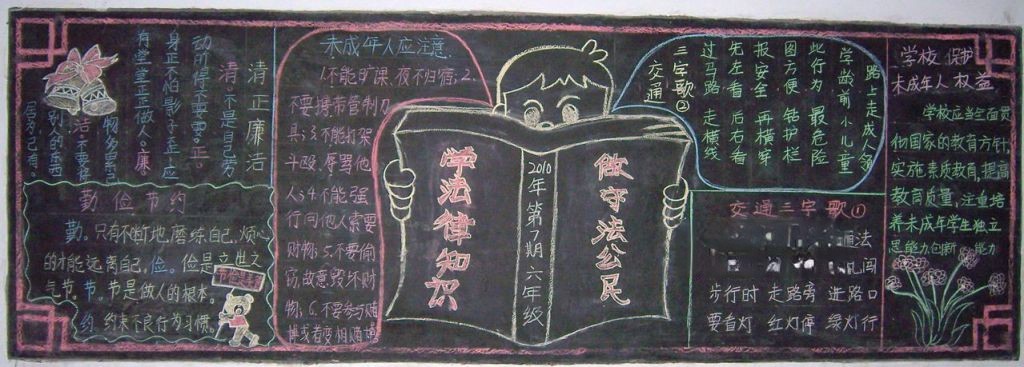 清正廉洁
清。不是自己劳
动所得不要要。正。
身正不怕影子歪，应
有堂堂正正做人。廉
洁
勤俭节约
勤。只有不断地磨练自己，烦心
的才能远离自己，俭。俭是立世之
气节。节。节是做人的根本。
约。约束不良行为习惯。
节俭是美
未成年人应注意
1.不能旷课、夜不归宿；2.
不要携带管制刀
具；3.不能打架
斗殴、辱骂他
人；4.不能强
行向他人索要
财物；5.不要偷
窃，故意毁坏财
物；6.不要参与赌
博或者变相赌博
学法律知识
2010年第7期六年级
做守法公民
交通
三字歌②
过马路 走横线
先左看 后右看
报安全 再横穿
图方便 钻护栏
此行为 最危险
学龄前 小儿童
路上走 成人领
交通三字歌①
面法
儿闯
步行时 走路旁 进路口
要看灯 红灯停 绿灯行
学校 保护
未成年人 权益
学校应当全面贯
彻国家的教育方针，
实施素质教育，提高
教育质量，注重培
养未成年学生独立
思能力创新 能力